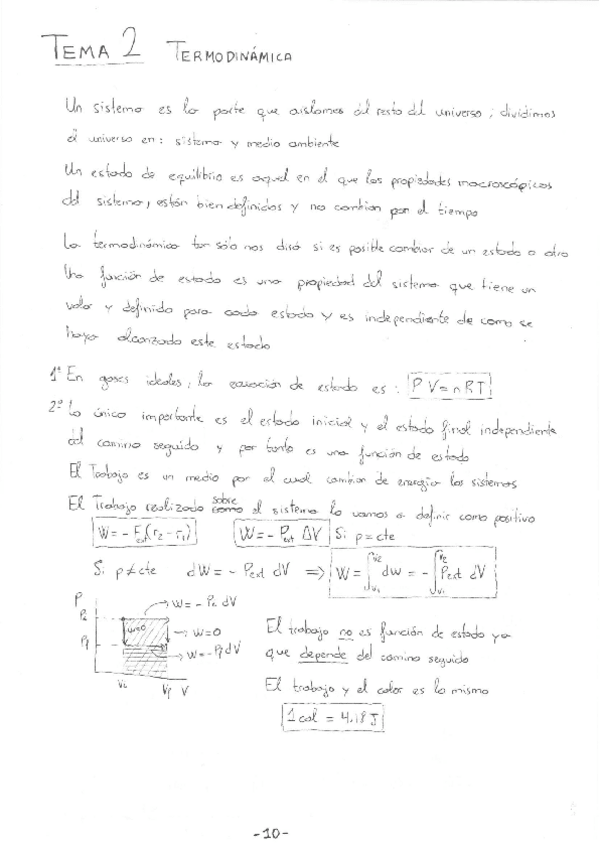 TEMA 2 TERMODINÁMICA
Un sistema es la parte que aislamos del resto del universo; dividimos
el universo en: sistema y medio ambiente
Un estado de equilibrio es aquel en el que las propiedades macroscópicas
del sistema, están bien definidas y no cambian por el tiempo
La termodinámica tan sólo nos dirá si es posible cambiar de un estado a otro
Una función de estado es una propiedad del sistema que tiene un
valor y definido para cada estado y es independiente de como se
haya alcanzado este estado
1º En gases ideales, la ecuación de estado es: PV=nRT
2º Lo único importante es el estado inicial y el estado final independiente
del camino seguido y por tanto es una función de estado
El Trabajo es un medio por el cual cambian de energía los sistemas
El Trabajo realizado sobre el sistema lo vamos a definir como positivo
W=-Fext(r2-r1) W=-Pext ΔV Si p=cte
Si p≠cte dW=-Pext dV => W=∫V1V2 dw = -∫V1V2 Pext dV
P
W=0
→W=0
V
El trabajo no es función de estado ya
que depende del camino seguido
El trabajo y el calor es lo mismo
1 cal = 4.18 J
-10-